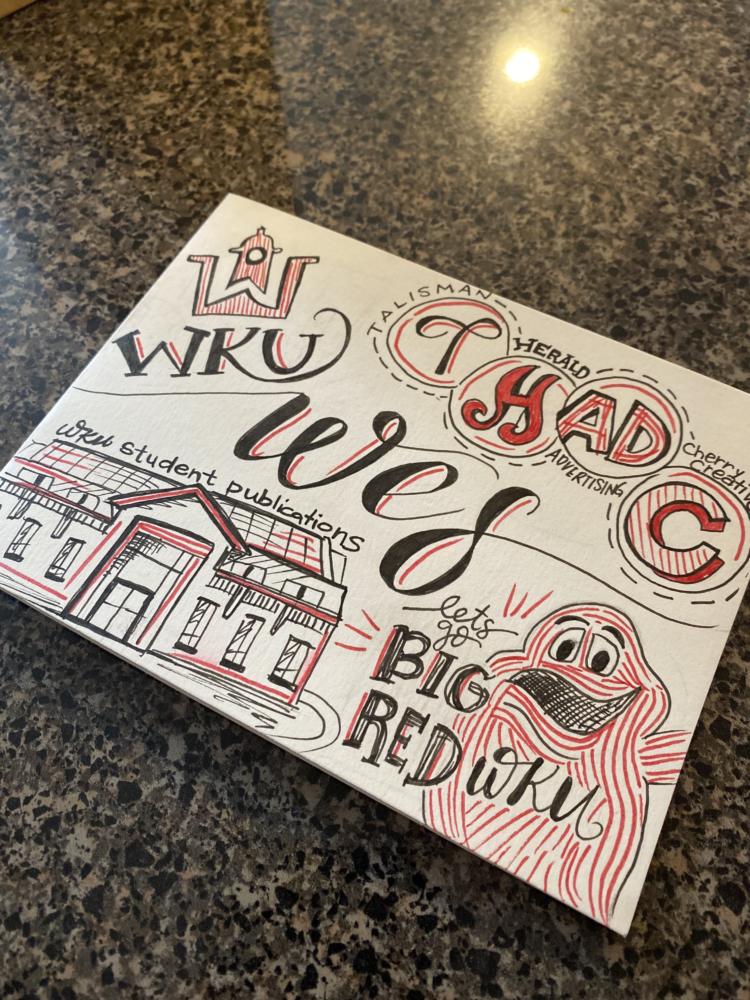 WKU
TALISMAN
T
HERALD
H
AD
ADVERTISING
cherry
creati
C
wes
wku student publications
lets
go
BIG
RED
WKU